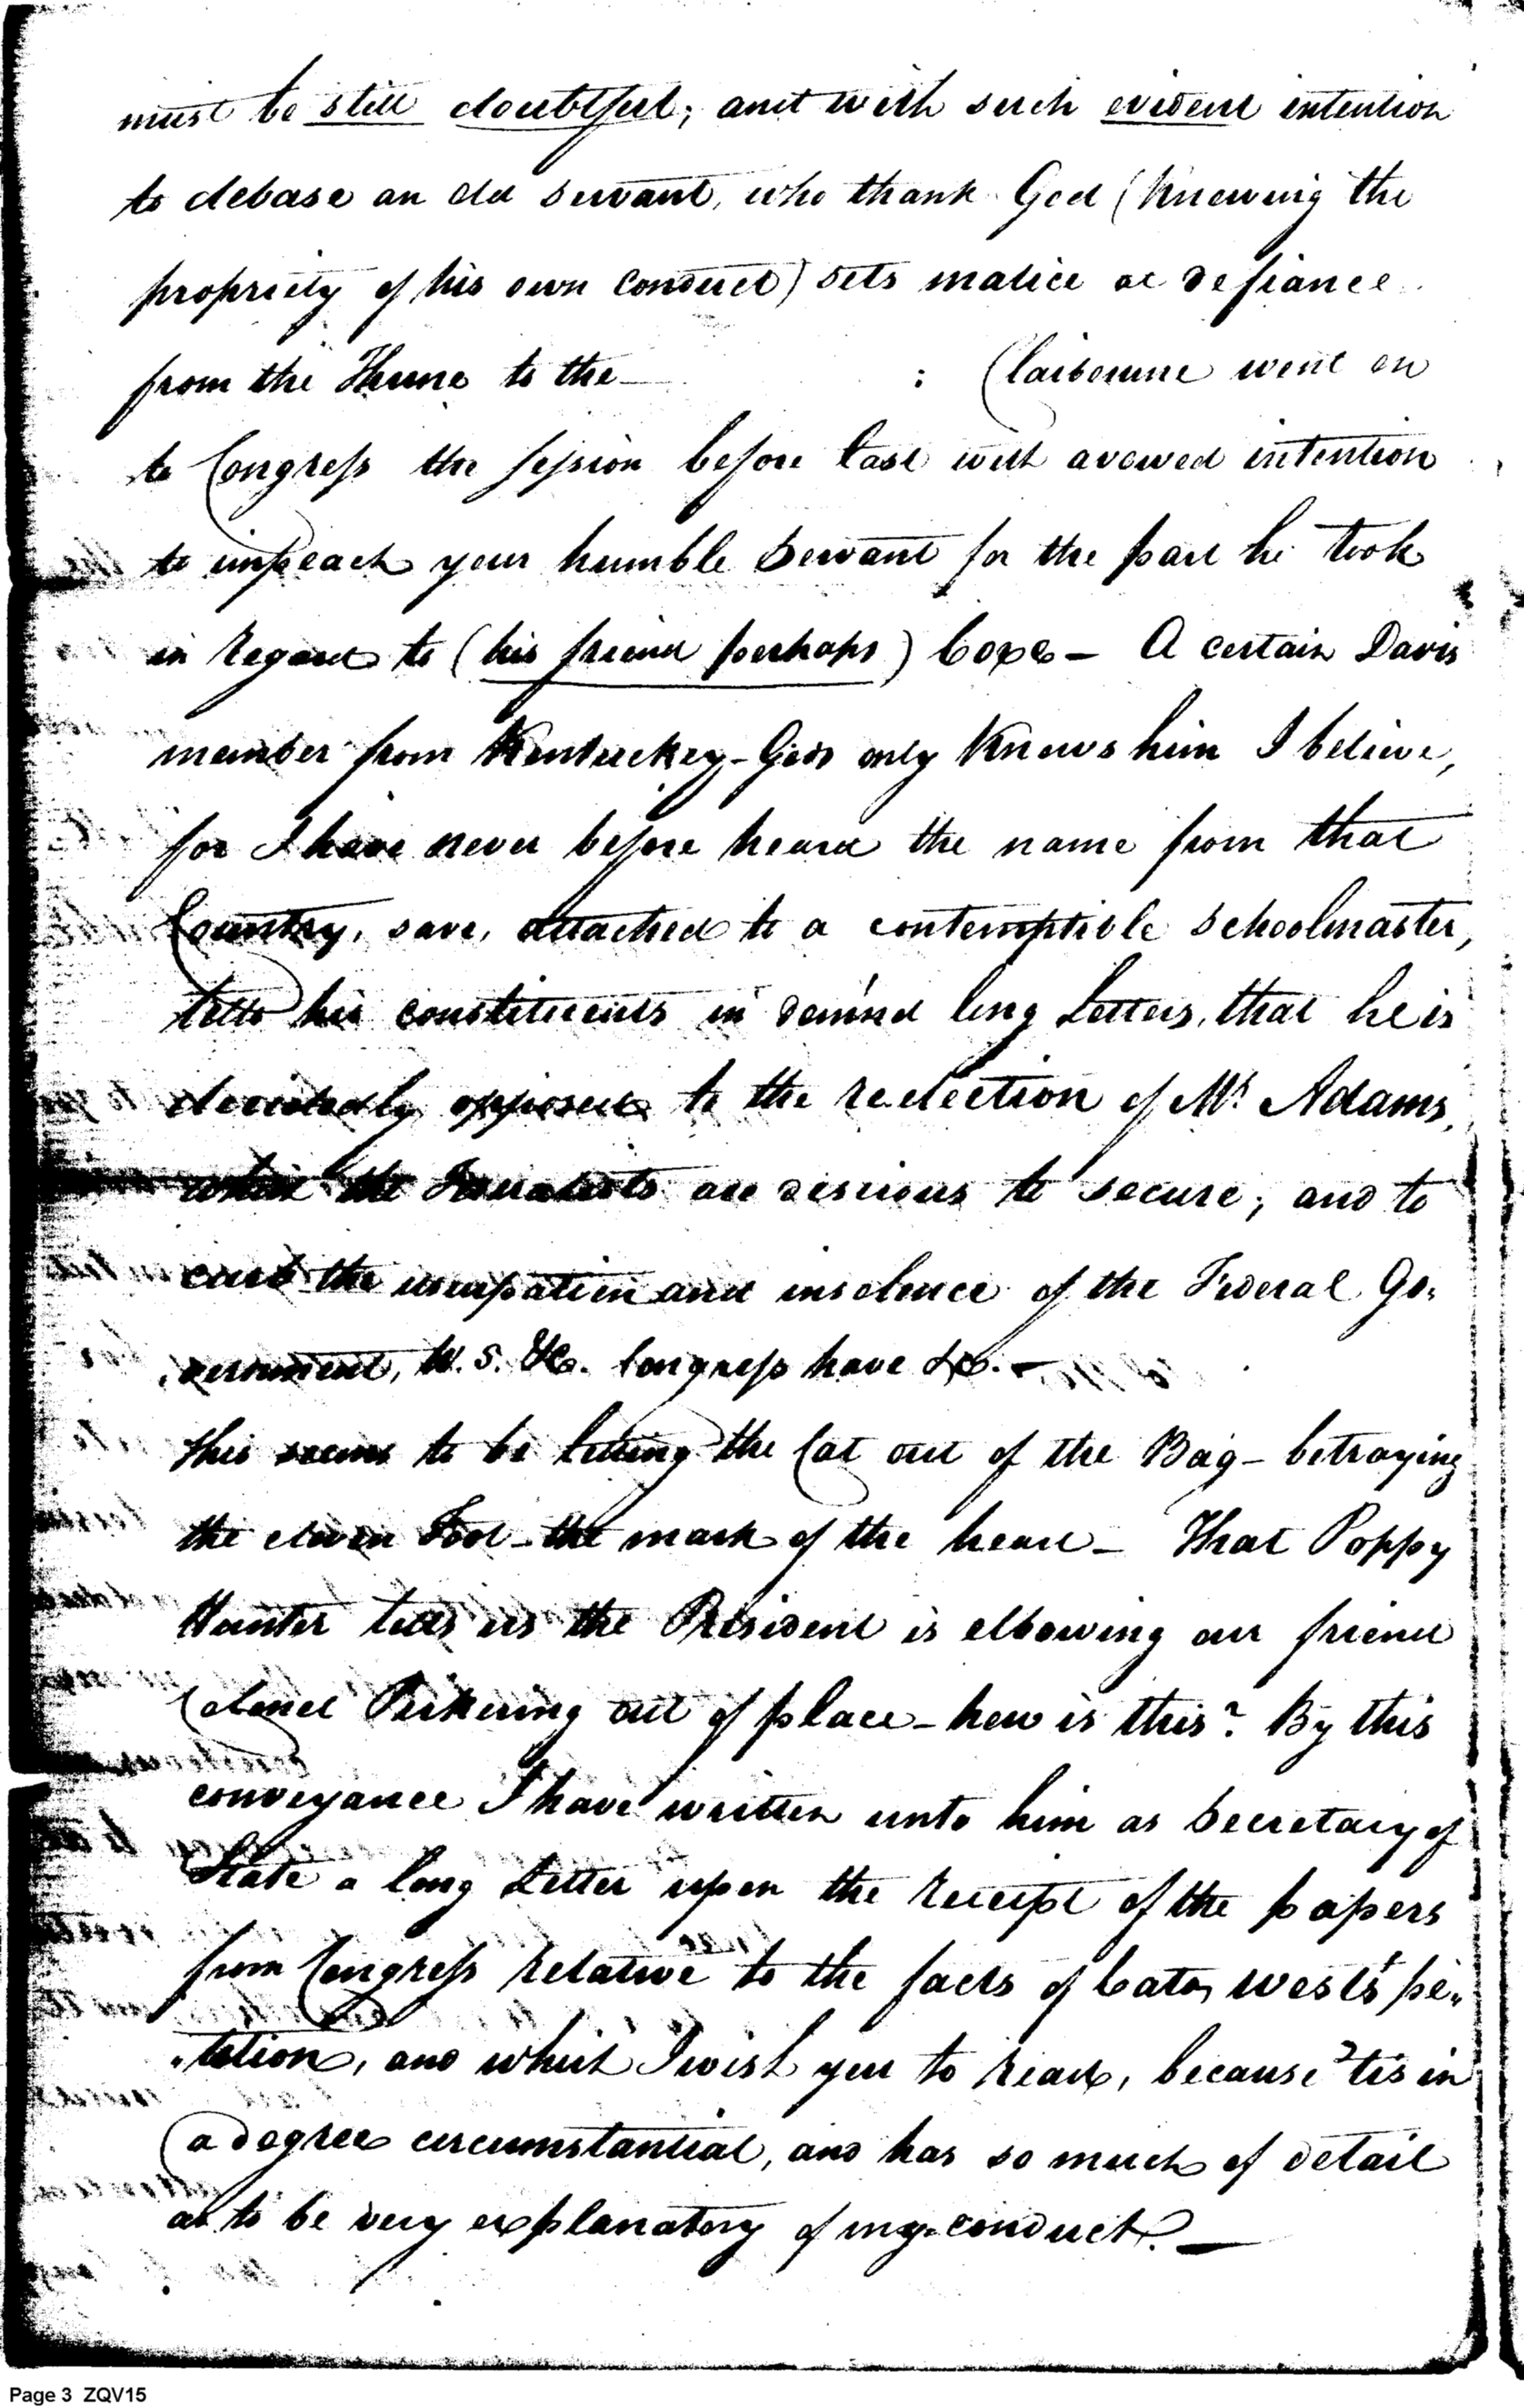 must be still doubtful; and with such evident intention
to debase an old servant, who thank God (Knowing the
propriety of his own conduct) sets malice at defiance
from the Throne to the — : Claiborne went on
to Congreſs the ſeſsion before last with avowed intention
to impeach your humble Servant for the part he took
in regard to (his friend perhaps) Coxe — A certain Davis
member from Kentuckey — God only Knows him I believe,
for I have never before heard the name from that
Country, save, attached to a contemptible Schoolmaster,
tells his constituents in damn'd long Letters, that he is
decidedly opposed to the reelection of Mr Adams,
which the are desirous to secure; and to
curb the usurpation and insolence of the Federal Go,
,vernment, W. S. &c. Congreſs have &c. —
this seems to be letting the Cat out of the Bag — betraying
the cloven Foot — the mark of the head — That Poppy
Hunter tells us the President is elbowing our friend
Colonel Pickering out of place — how is this? By this
conveyance I have written unto him as Secretary of
State a long Letter upon the receipt of the papers
from Congreſs relative to the facts of Cato, West's pe„
„tition, and which I wish you to read, because 'tis in
a degree circumstantial, and has so much of detail
as to be very explanatory of my conduct. —
Page 3 ZQV15